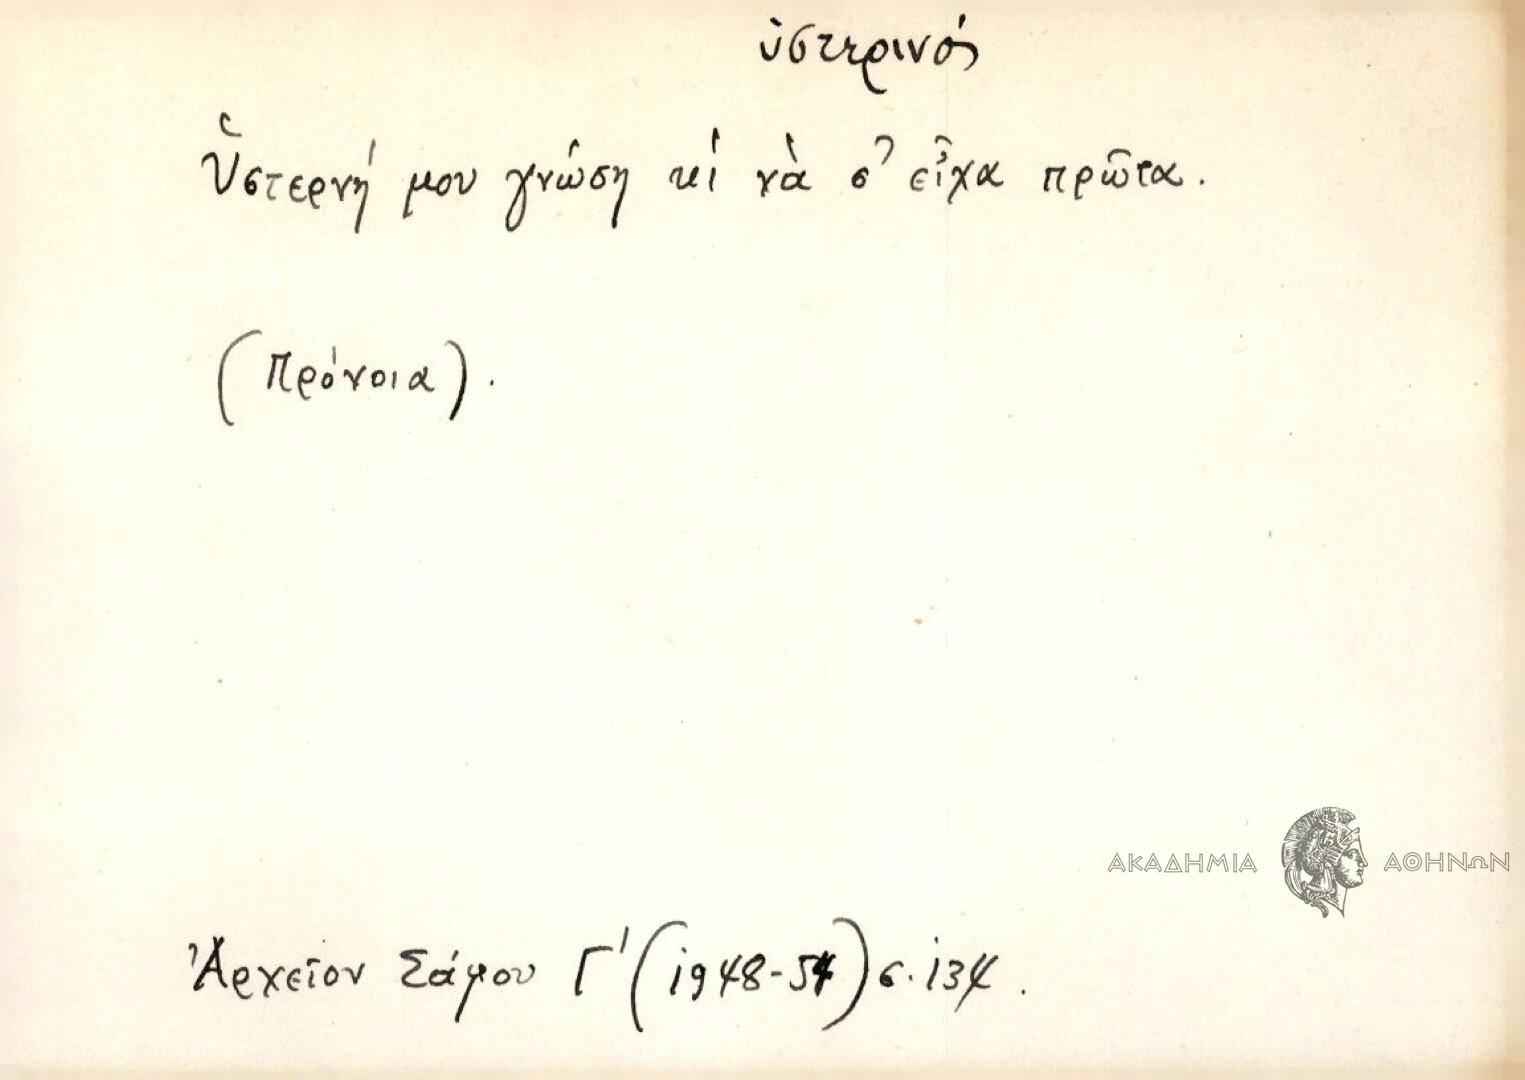 ὑστερινός
Ὑστερνή μου γνώση κὶ νὰ σ' εἶχα πρῶτα.
(Πρόνοια).
ΑΚΑΔΗΜΙΑ ΑΘΗΝΩΝ
Ἀρχεῖον Σάμου Γ' (1948-54) σ. 134.